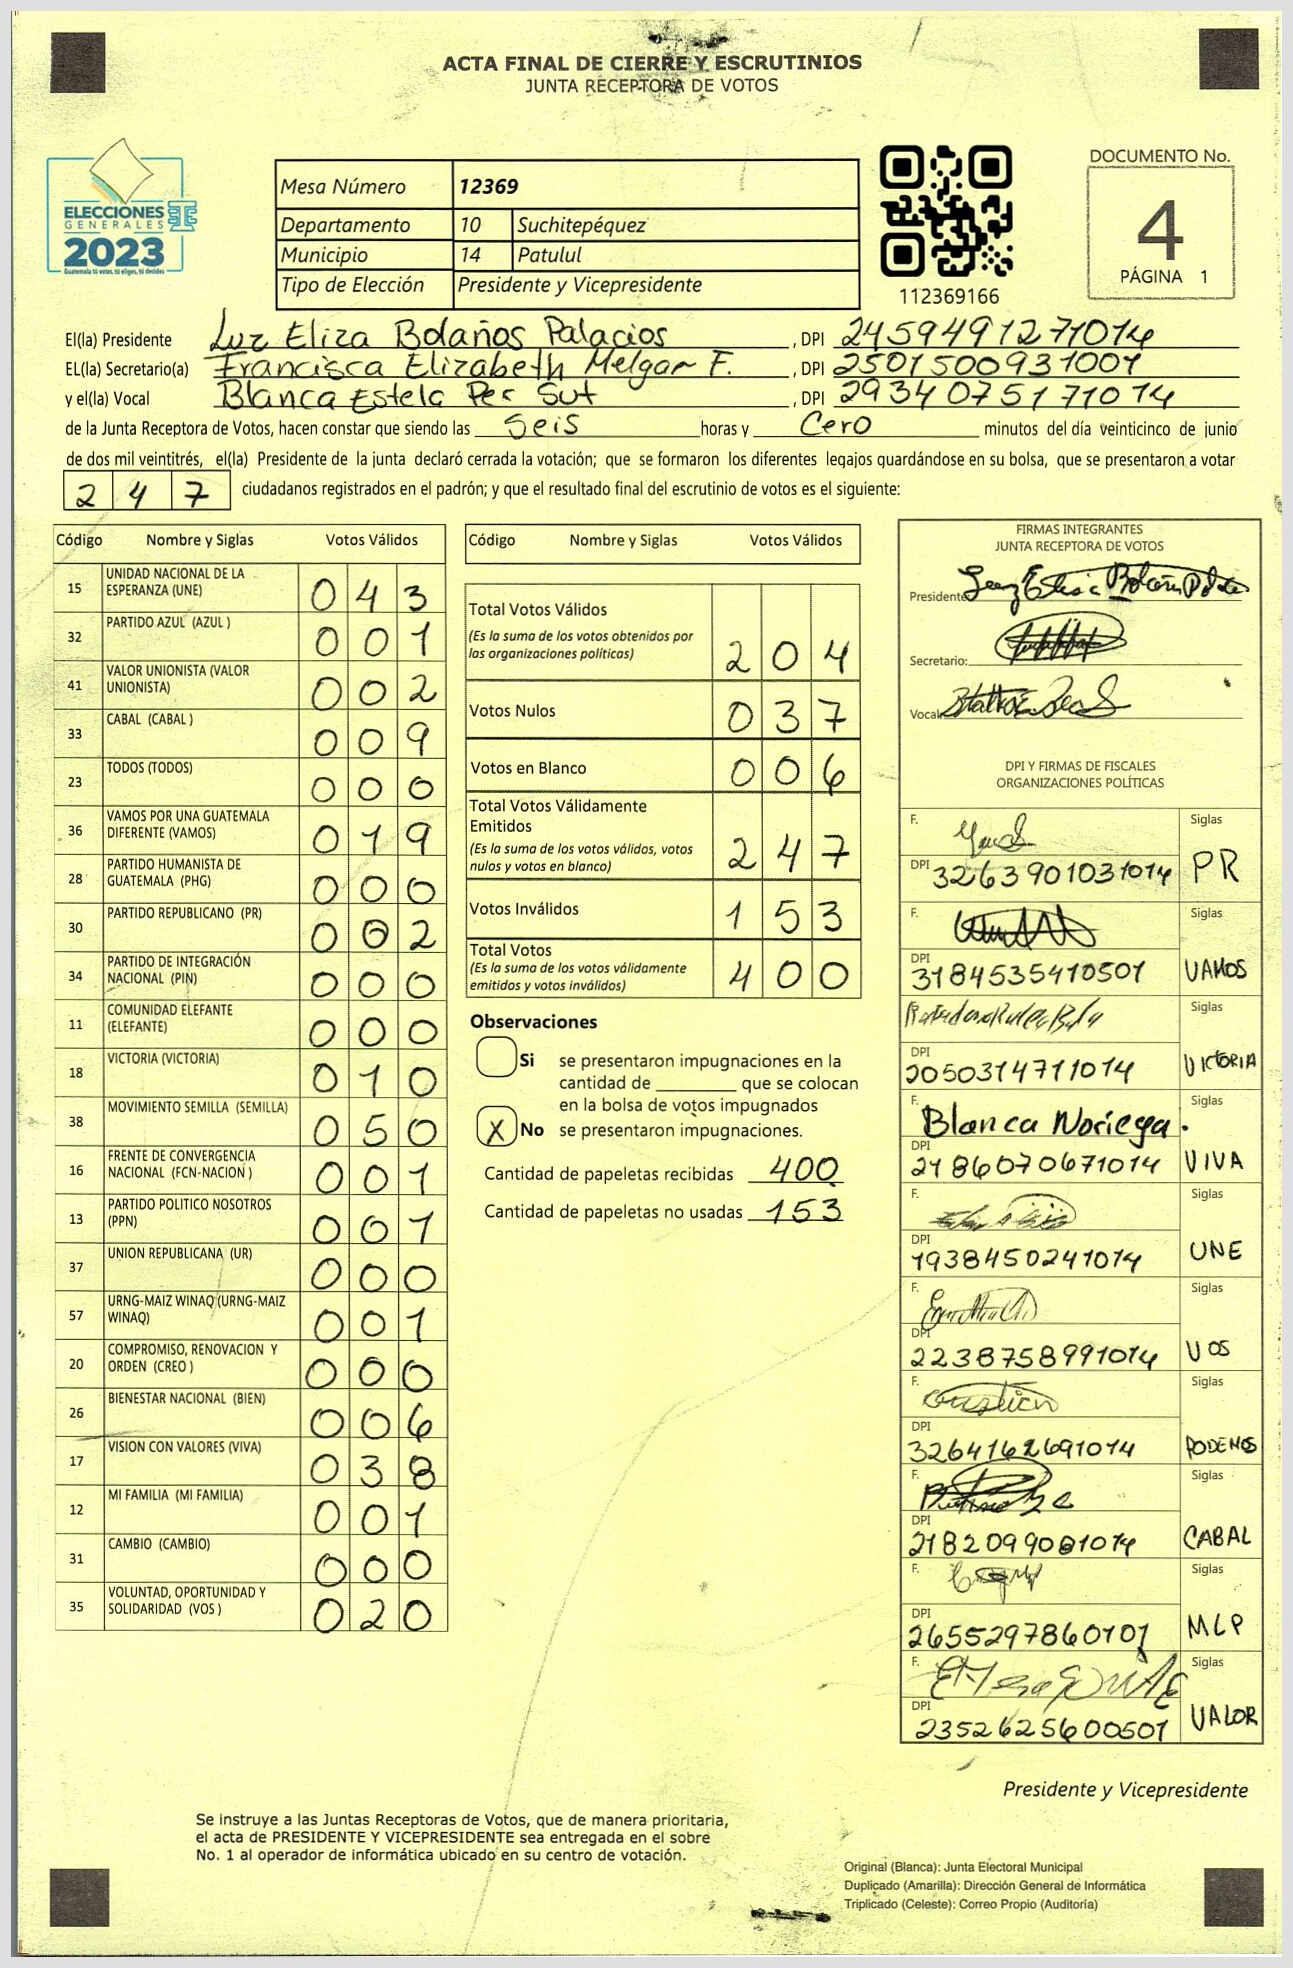 ACTA FINAL DE CIERRE Y ESCRUTINIOS
JUNTA RECEPTORA DE VOTOS
ELECCIONES
GENERALES
2023
Guatemala tú votas, tú eliges, tú decides
Mesa Número 12369
Departamento 10 Suchitepéquez
Municipio 14 Patulul
Tipo de Elección Presidente y Vicepresidente
112369166
DOCUMENTO No.
4
PÁGINA 1
El(la) Presidente Luz Eliza Bolaños Palacios , DPI 2459491271014
EL(la) Secretario(a) Francisca Elizabeth Melgar F. , DPI 2501500931001
y el(la) Vocal Blanca Estela Per Sut , DPI 2934075171014
de la Junta Receptora de Votos, hacen constar que siendo las Seis horas y Cero minutos del día veinticinco de junio
de dos mil veintitrés, el(la) Presidente de la junta declaró cerrada la votación; que se formaron los diferentes legajos guardándose en su bolsa, que se presentaron a votar
247 ciudadanos registrados en el padrón; y que el resultado final del escrutinio de votos es el siguiente:
Código Nombre y Siglas Votos Válidos
15 UNIDAD NACIONAL DE LA ESPERANZA (UNE) 043
32 PARTIDO AZUL (AZUL ) 001
41 VALOR UNIONISTA (VALOR UNIONISTA) 002
33 CABAL (CABAL ) 009
23 TODOS (TODOS) 000
36 VAMOS POR UNA GUATEMALA DIFERENTE (VAMOS) 019
28 PARTIDO HUMANISTA DE GUATEMALA (PHG) 000
30 PARTIDO REPUBLICANO (PR) 002
34 PARTIDO DE INTEGRACIÓN NACIONAL (PIN) 000
11 COMUNIDAD ELEFANTE (ELEFANTE) 000
18 VICTORIA (VICTORIA) 010
38 MOVIMIENTO SEMILLA (SEMILLA) 050
16 FRENTE DE CONVERGENCIA NACIONAL (FCN-NACION ) 001
13 PARTIDO POLITICO NOSOTROS (PPN) 001
37 UNION REPUBLICANA (UR) 000
57 URNG-MAIZ WINAQ (URNG-MAIZ WINAQ) 001
20 COMPROMISO, RENOVACION Y ORDEN (CREO ) 000
26 BIENESTAR NACIONAL (BIEN) 006
17 VISION CON VALORES (VIVA) 038
12 MI FAMILIA (MI FAMILIA) 001
31 CAMBIO (CAMBIO) 000
35 VOLUNTAD, OPORTUNIDAD Y SOLIDARIDAD (VOS ) 020
Código Nombre y Siglas Votos Válidos
Total Votos Válidos 204
(Es la suma de los votos obtenidos por
las organizaciones políticas)
Votos Nulos 037
Votos en Blanco 006
Total Votos Válidamente
Emitidos 247
(Es la suma de los votos válidos, votos
nulos y votos en blanco)
Votos Inválidos 153
Total Votos 400
(Es la suma de los votos válidamente
emitidos y votos inválidos)
Observaciones
Si se presentaron impugnaciones en la
cantidad de ________ que se colocan
en la bolsa de votos impugnados
X No se presentaron impugnaciones.
Cantidad de papeletas recibidas 400
Cantidad de papeletas no usadas 153
FIRMAS INTEGRANTES
JUNTA RECEPTORA DE VOTOS
Presidente:
Secretario:
Vocal:
DPI Y FIRMAS DE FISCALES
ORGANIZACIONES POLÍTICAS
F. Siglas
DPI 3263901031014 PR
F. Siglas
DPI 3184535410501 VAMOS
F. Siglas
DPI 2050314711014 VICTORIA
F. Blanca Noriega. Siglas
DPI 2186070671014 VIVA
F. Siglas
DPI 1938450241014 UNE
F. Siglas
DPI 2238758991014 VOS
F. Siglas
DPI 3264162691014 PODEMOS
F. Siglas
DPI 2182099081014 CABAL
F. Siglas
DPI 2655297860101 MLP
F. Siglas
DPI 2352625600501 VALOR
Presidente y Vicepresidente
Se instruye a las Juntas Receptoras de Votos, que de manera prioritaria,
el acta de PRESIDENTE Y VICEPRESIDENTE sea entregada en el sobre
No. 1 al operador de informática ubicado en su centro de votación.
Original (Blanca): Junta Electoral Municipal
Duplicado (Amarilla): Dirección General de Informática
Triplicado (Celeste): Correo Propio (Auditoría)